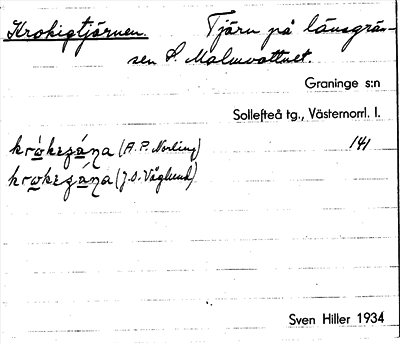 Krokigtjärnen. Tjärn på länsgrän-
sen S. Malmvattnet.
Graninge s:n
Sollefteå tg., Västernorrl. l.
(A. P. Norling) 141
(J. O. Våglund)
Sven Hiller 1934